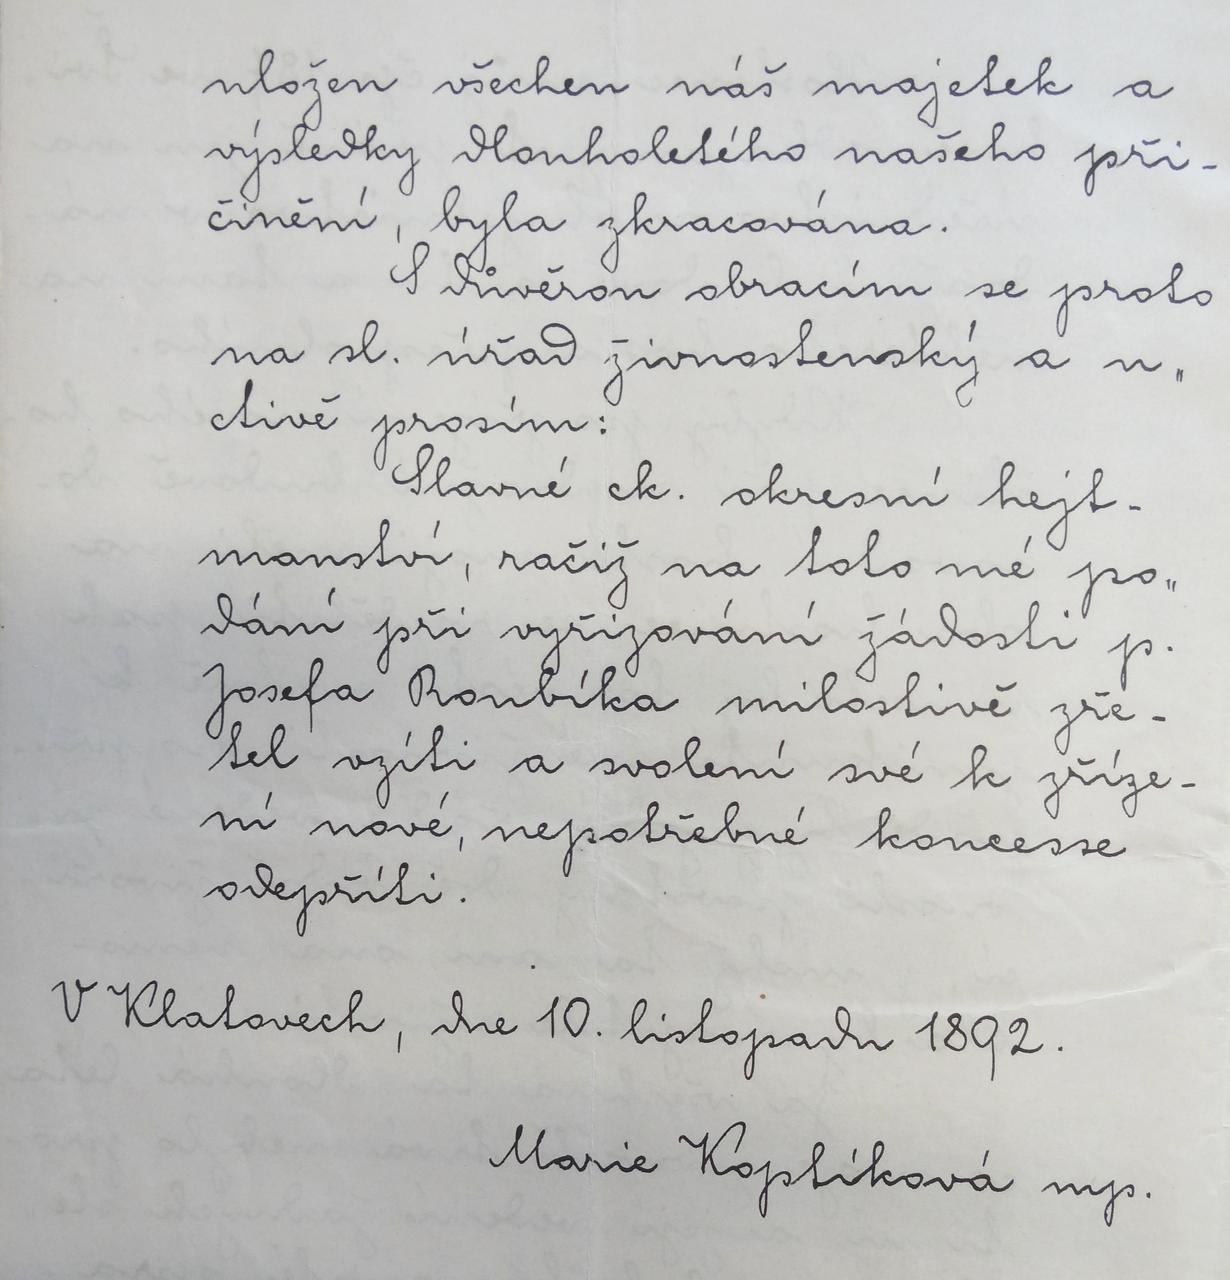 uložen všechen náš majetek a
výsledky dlouholetého našeho při-
činění, byla zkracována.
S důvěrou obracím se proto
na sl. úřad živnostenský a u„
ctivě prosím:
Slavné ck. okresní hejt-
manství, račiž na toto mé po„
dání při vyřizování žádosti p.
Josefa Roubíka milostivě zře-
tel vzíti a svolení své k zříze-
ní nové, nepotřebné koncesse
odepříti.
V Klatovech, dne 10. listopadu 1892.
Marie Koptíková mp.